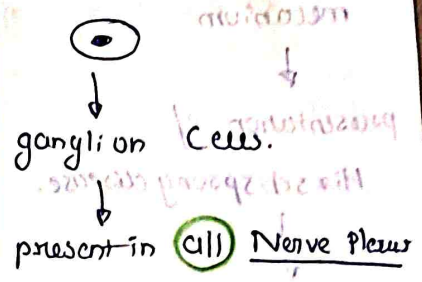 ganglion cells.
present in all Nerve Plexus